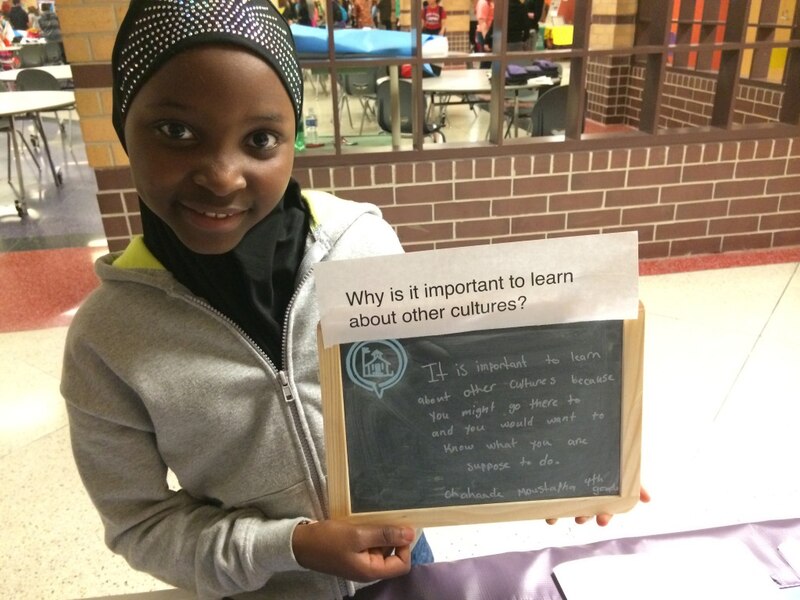 Why is it important to learn
about other cultures?
It is important to learn
about other cultures because
you might go there to
and you would want to
know what you are
suppose to do.
Moustapha 4th